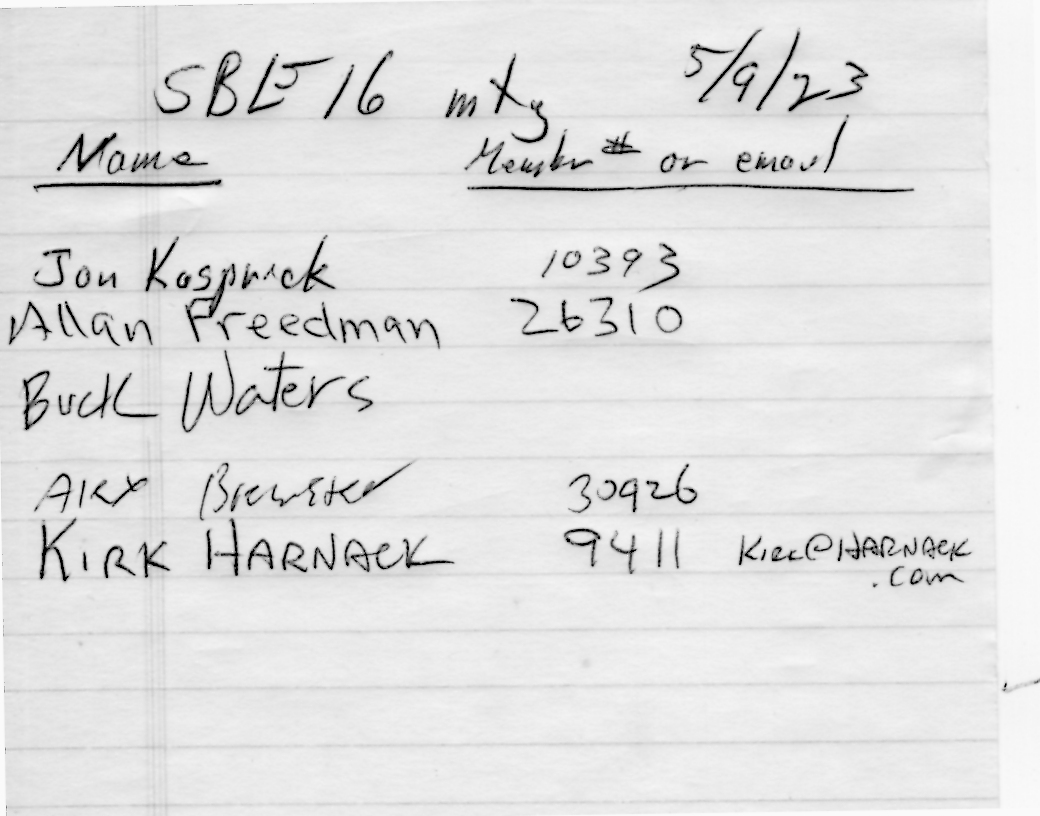 SBE 16 mtg 5/9/23
Name Member # or email
Jon Kasprick 10393
Allan Freedman 26310
Buck Waters
Alex Brewster 30926
KIRK HARNACK 9411 KIRK@HARNACK
.com